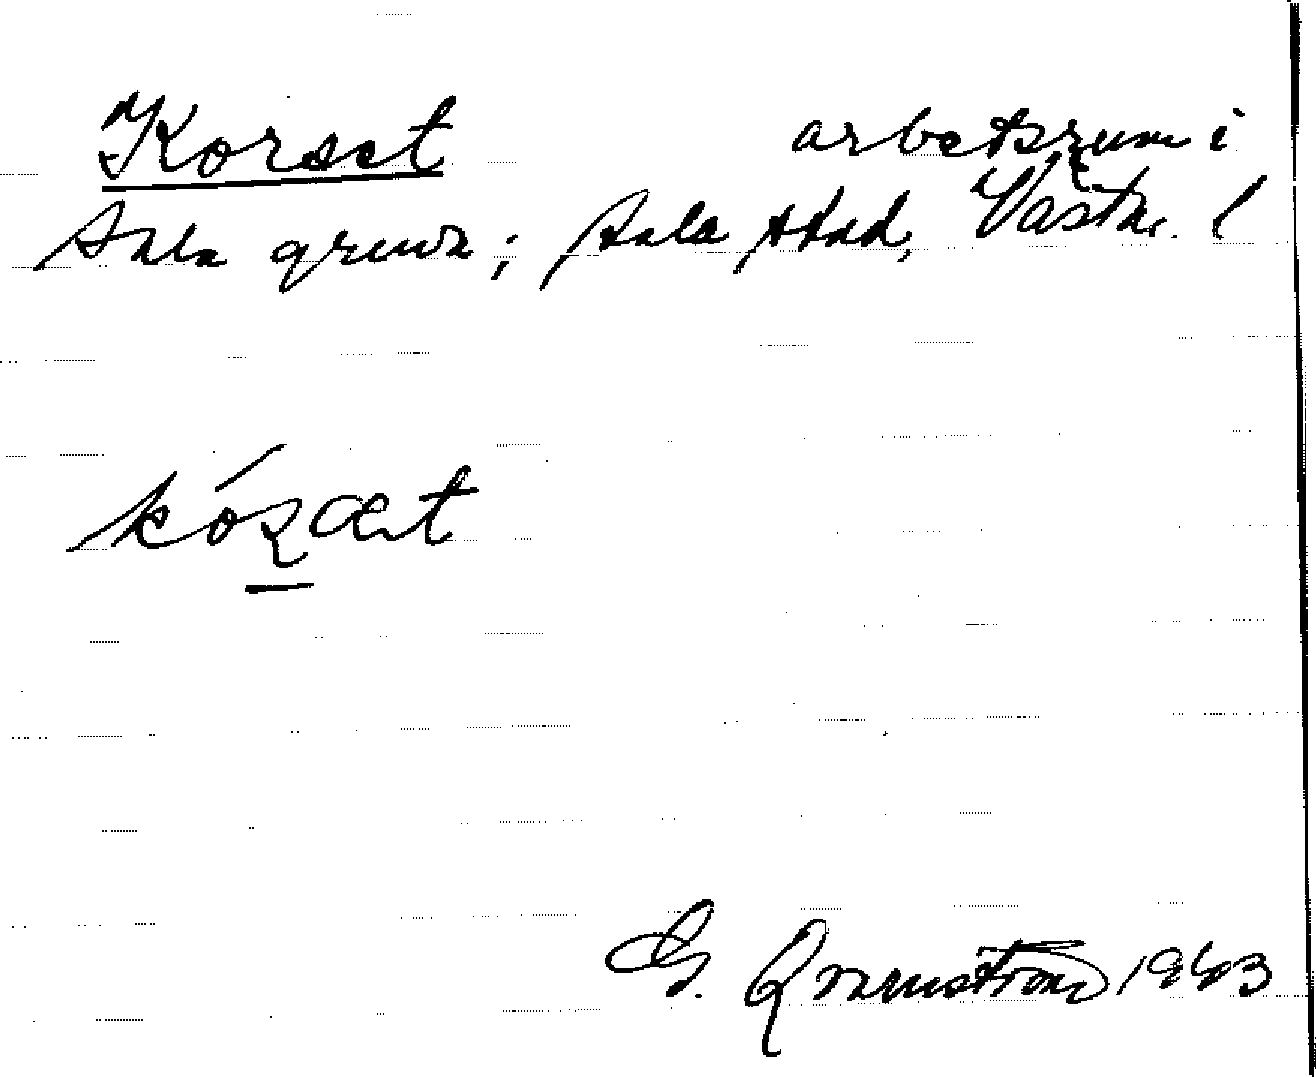 Korset arbetsrum i
Sala gruva; Sala stad, Västm. l
kóʂæt
G. Qvarnström 1963